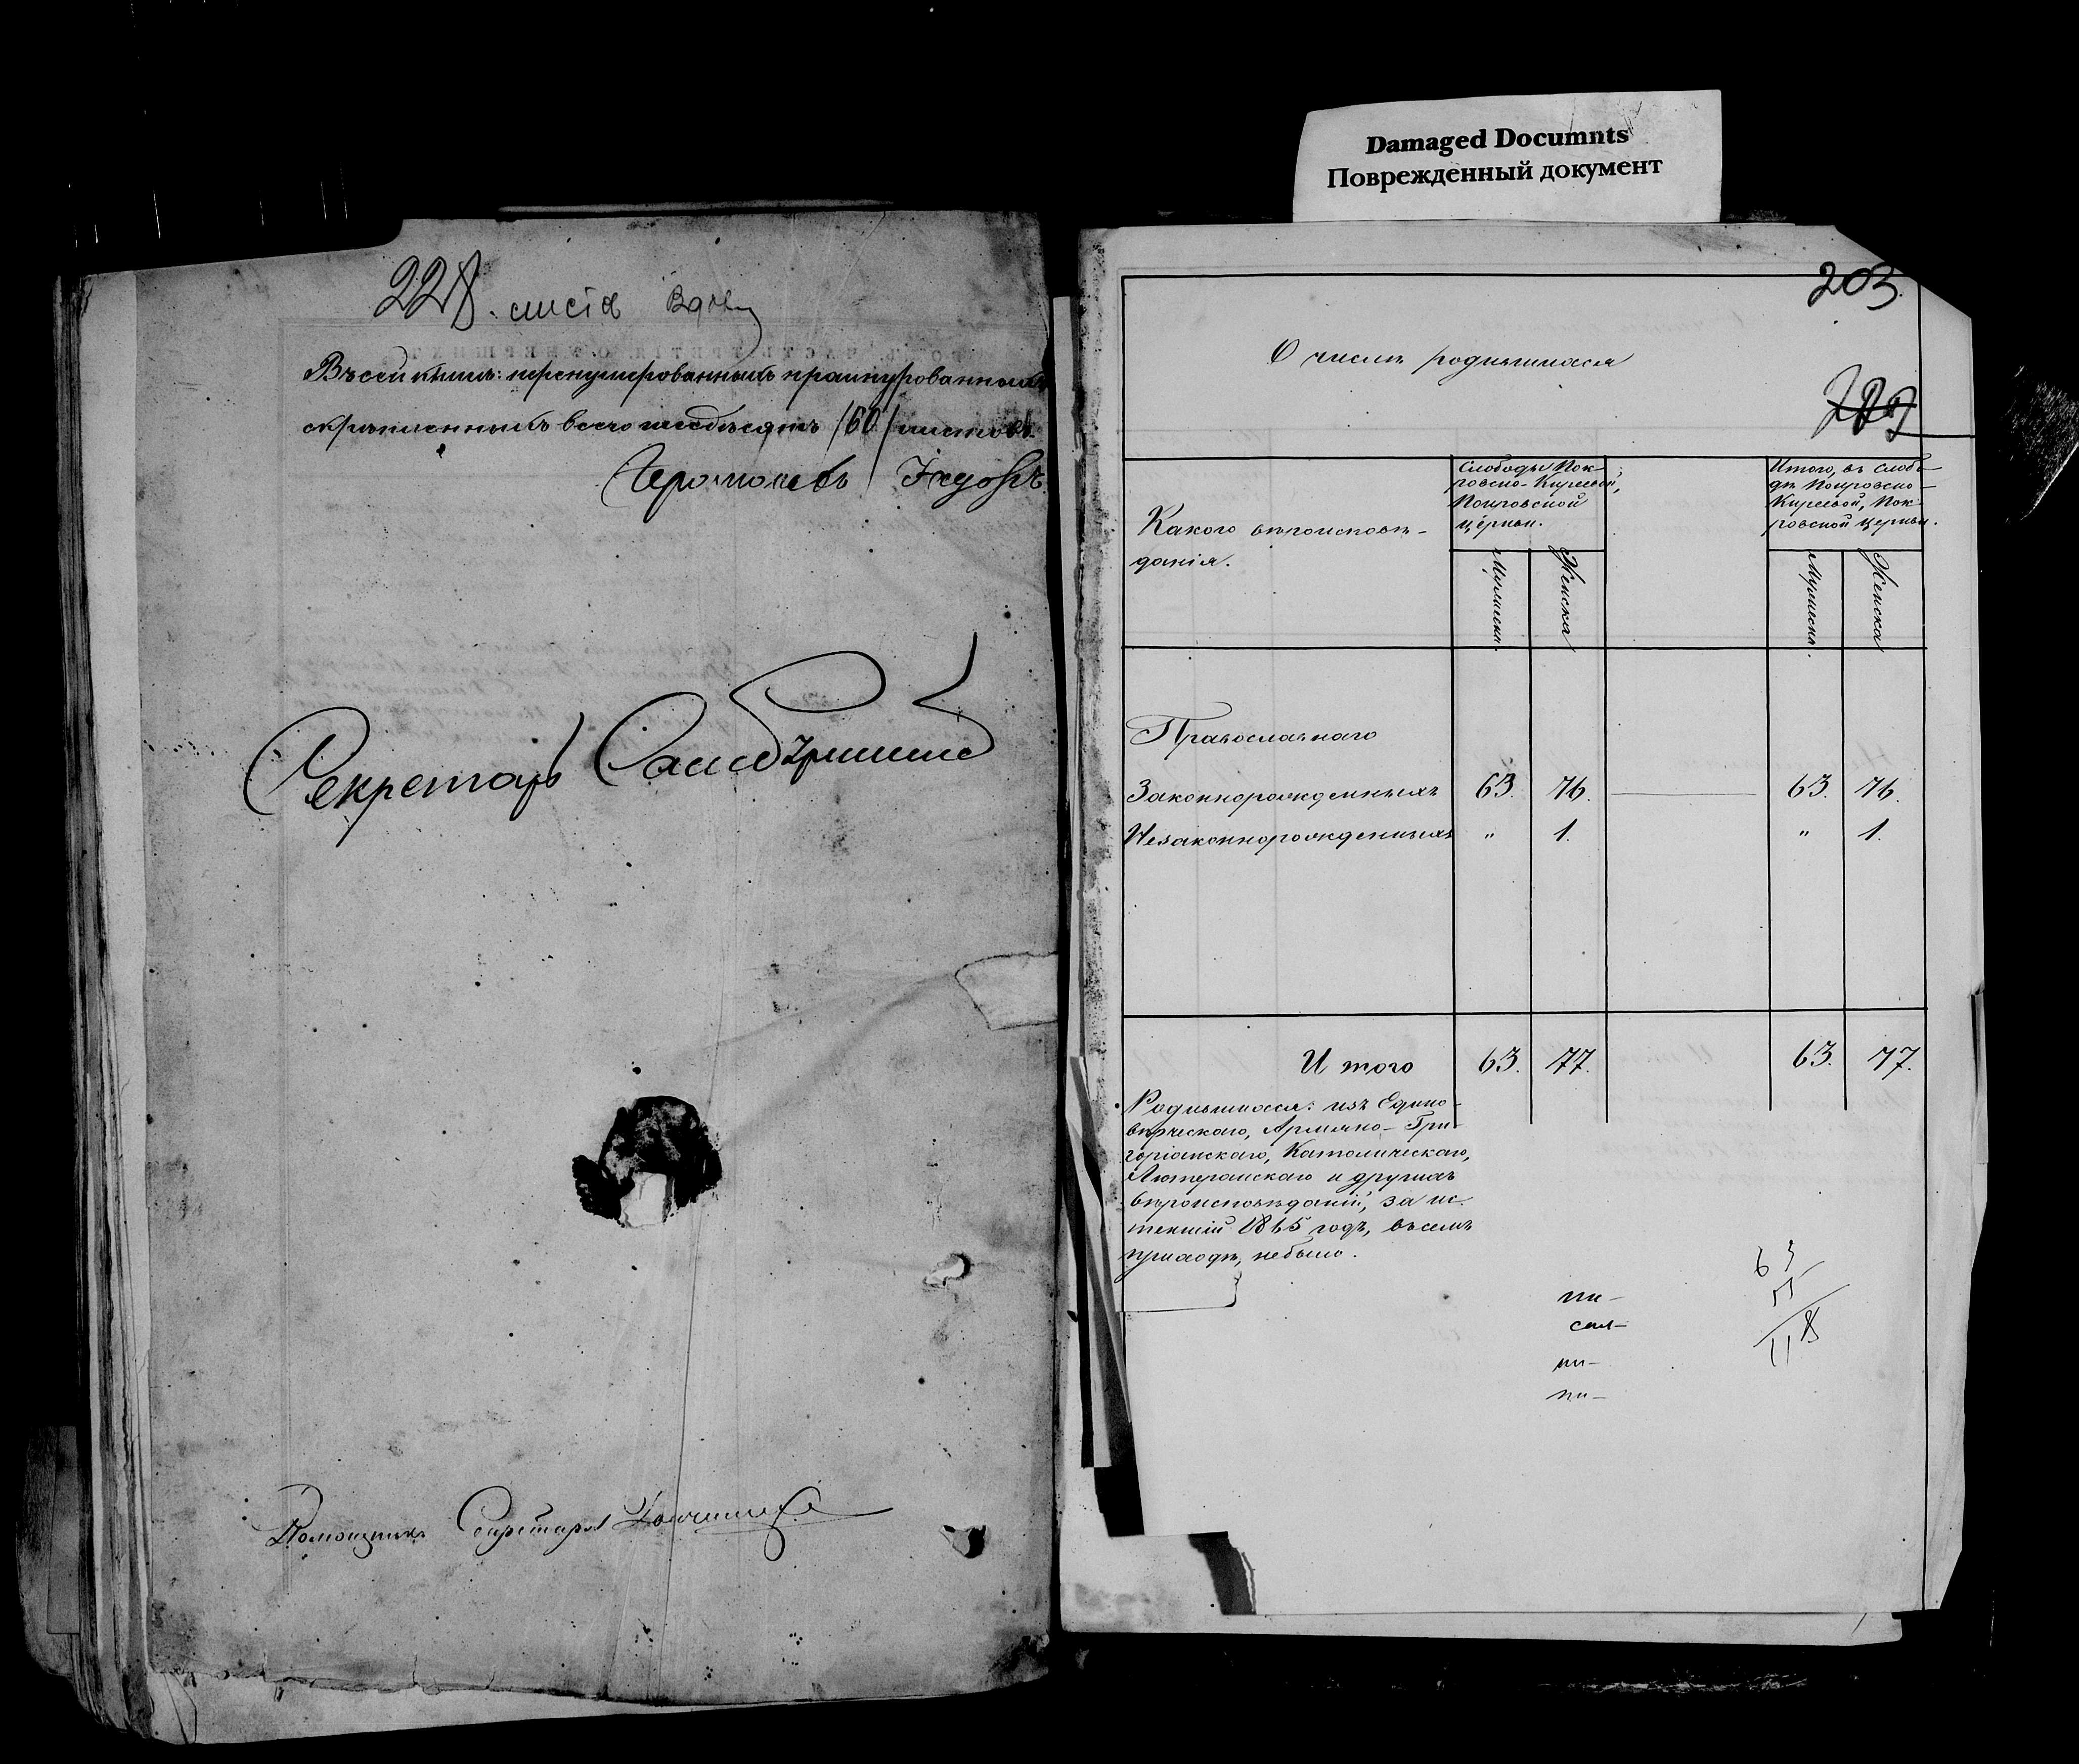 228. листа
Въ сей книге: перенумерованныхъ прошнурованныхъ
скрѣпленныхъ всего шестьдесятъ /60/ листовъ.
Іеромонахъ
Секретарь
Помощникъ Секретаря
Damaged Documnts
Поврежденный документ
203.
О числѣ родившихся
Какого вѣроисповѣ-
данія.
Слободы Пок-
ровско-Киреевой,
Покровской
церкви.
Мужеска.
Женска
Итого, въ слобо-
дѣ Покровско-
Киреевой, Пок-
ровской церкви.
Мужеска.
Женска
Православнаго
Законнорожденныхъ 63. 76. 63. 76.
Незаконнорожденныхъ " 1. " 1.
Итого 63. 77. 63. 77.
Родившихся: изъ Едино-
вѣрческаго, Армяно-Гри-
горіанскаго, Католическаго,
Лютеранскаго и другихъ
вѣроисповѣданій, за ис-
текшій 1865 годъ, въ семъ
приходѣ, небыло.
63
55
118